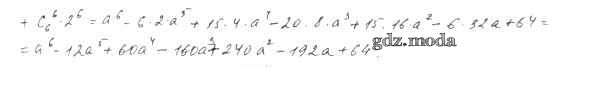 + C₆⁶·2⁶ = a⁶ - 6·2·a⁵ + 15·4·a⁴ - 20·8·a³ + 15·16·a² - 6·32a + 64 =
= a⁶ - 12a⁵ + 60a⁴ - 160a³ + 240a² - 192a + 64.
gdz.moda